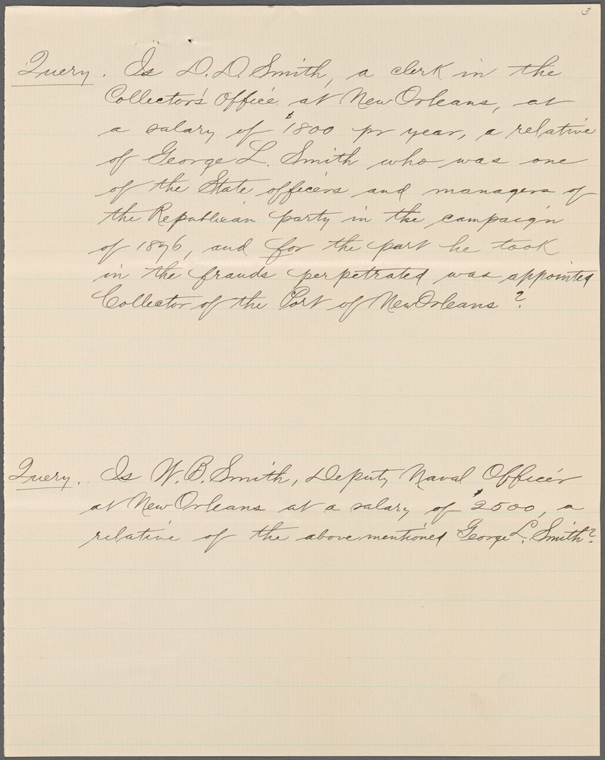 3
Query. Is D. D. Smith, a clerk in the
Collector's Office, at New Orleans, at
a salary of $1800 pr year, a relative
of George L. Smith who was one
of the State officers and managers of
the Republican party in the campaign
of 1876, and for the part he took
in the frauds perpetrated was appointed
Collector of the Port of New Orleans?
Query. Is W. B. Smith, Deputy Naval Officer
at New Orleans at a salary of $2500, a
relative of the above mentioned George L. Smith?